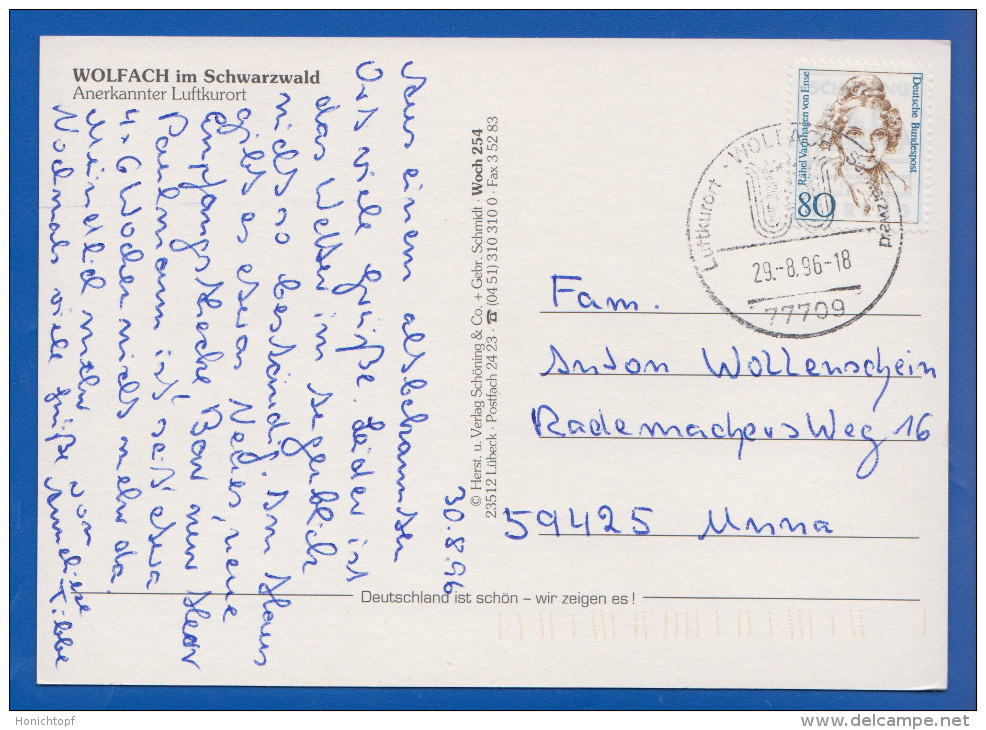 WOLFACH im Schwarzwald
Anerkannter Luftkurort
30.8.96
Aus einem altbekannten
Ort viele Grüße. Leider ist
das Wetter in
nicht so beständig. Im Haus
gibt es etwas Neues, neue
Empfangstheke, Bar neu Herr
Paulmann ist seit etwa
4x6 Wochen nicht mehr da.
Mündlich mehr
Nochmals viele Grüße von
© Herst. u. Verlag Schöning & Co. + Gebr. Schmidt · Woch 254
23512 Lübeck · Postfach 24 23 · ☎ (04 51) 310 310 0 · Fax 3 52 83
Deutsche Bundespost
Rahel Varnhagen von Ense
80
Luftkurort · WOLFACH / Schwarzwald
29.-8.96-18
77709
Fam.
Anton Wollenschein
RademachersWeg 16
59425 Unna
Deutschland ist schön – wir zeigen es !
Honichtopf
www.delcampe.net